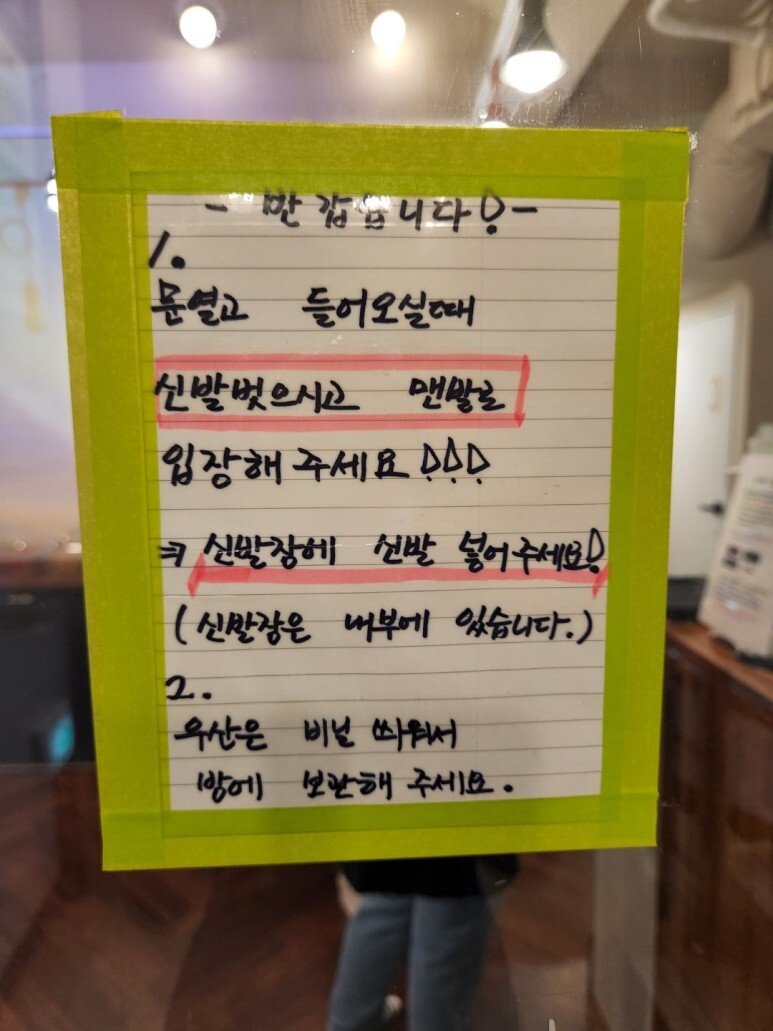 - 반갑습니다! -
1.
문열고 들어오실때
신발벗으시고 맨발로
입장해 주세요!!!
⇒ 신발장에 신발 넣어주세요!
(신발장은 내부에 있습니다.)
2.
우산은 비닐 씌워서
방에 보관해 주세요.